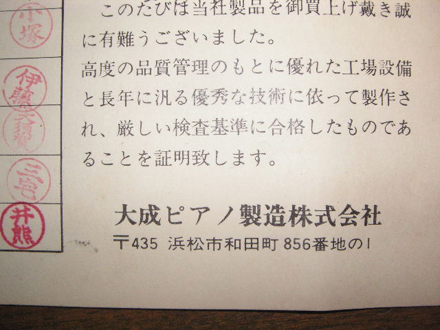 このたびは当社製品を御買上げ戴き誠
に有難うございました。
高度の品質管理のもとに優れた工場設備
と長年に汎る優秀な技術に依って製作さ
れ、厳しい検査基準に合格したものであ
ることを証明致します。
大成ピアノ製造株式会社
〒435 浜松市和田町856番地の1
小塚
伊藤
井熊